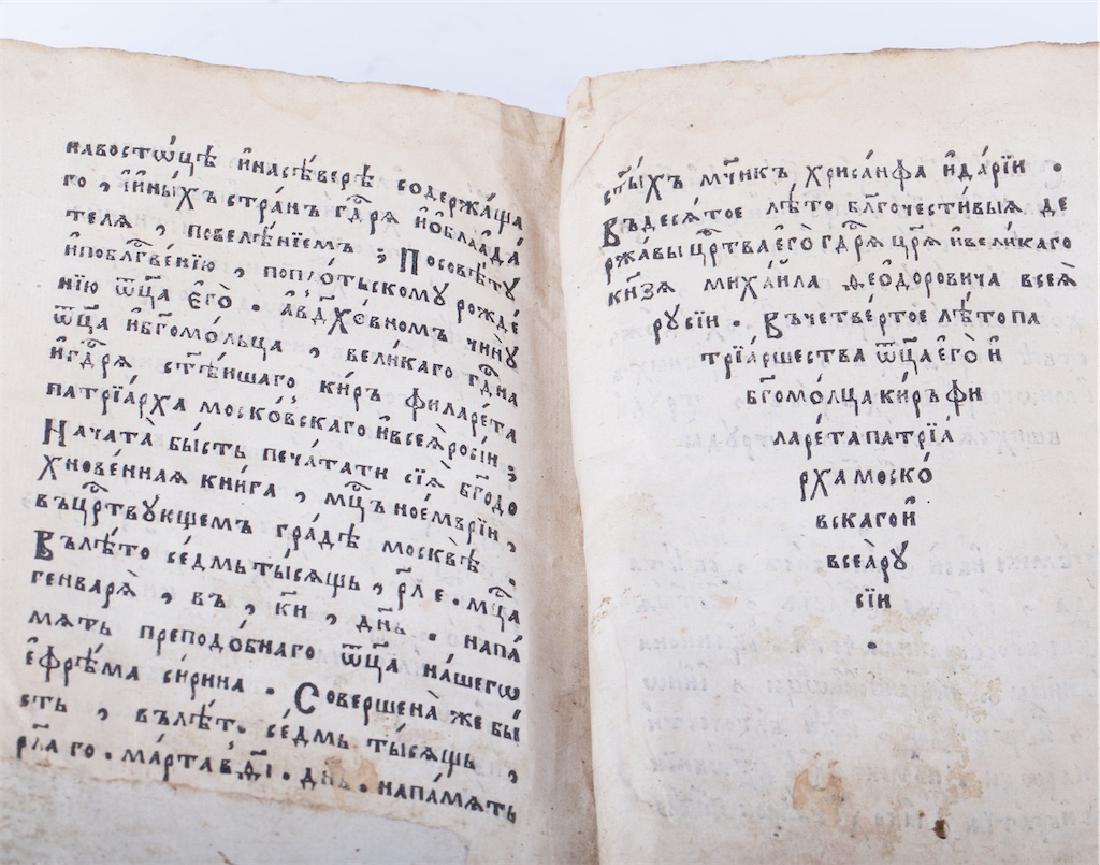 навостѡ́цѣ и҆насѣ́верѣ содержа́ща
го , и҆и҆ны́хъ стра́нъ гдⷭ҇рѧ и҆ѡ҆блада́
телѧ , повелѣ́нїемъ ; Посовѣ́ту
и҆поблгⷭ҇ве́нїю , попло́тьскому рожде́
нїю ѻ҆ц҃а є҆гѡ̀ . а҆в̾дх҃о́вномъ чи́нꙋ
ѿц҃а и҆бг҃омо́льца , вели́каго гдⷭ҇на
и҆гдⷭ҇рѧ ст҃ѣ́ишаго ки́ръ филаре́та
патрїа́рха моско́вскаго и҆всеѧ̀ рꙋсїи ;
Начата̀ бы́сть печа́тати сїѧ̀ бг҃одо
хнове́ннаѧ кни́га , мцⷭ҇ъ ное́мврїи ,
въцрⷭ҇твꙋющемъ гра́дѣ москвѣ̀ .
Вълѣ́то се́дмьты́сѧщь , рл҃е . мцⷭ҇а
генварѧ̀ , въ , к҃и , дн҃ь . напа́
мѧть преподо́бнаго ѿц҃а на́шегѡ
є҆фре́ма си́рина . Соверше́на же бы́
сть , вълѣ́т . се́дмь ты́сѧщь ,
рл҃а го . ма́рта въ , ѳ҃і . дн҃ь . напа́мѧть
ст҃ы́хъ мч҃нкъ , хриса́нфа и҆да́рїи .
Въдесѧ́тое лѣ́то блг҃очести́выѧ де
ржа́вы црⷭ҇тва є҆гѡ̀ гдⷭ҇рѧ цр҃ѧ и҆вели́каго
кн҃зѧ миха́ила ѳео́доровича всеѧ̀
рꙋсїи . Въчетве́ртое лѣ́то па
трїа́ршества ѿц҃а є҆гѡ̀ и҆
бг҃омо́лца ки́ръ фи
ларе́та патрїа́
рха моско́
вскаго и҆
всеѧ̀ рꙋ
сїи